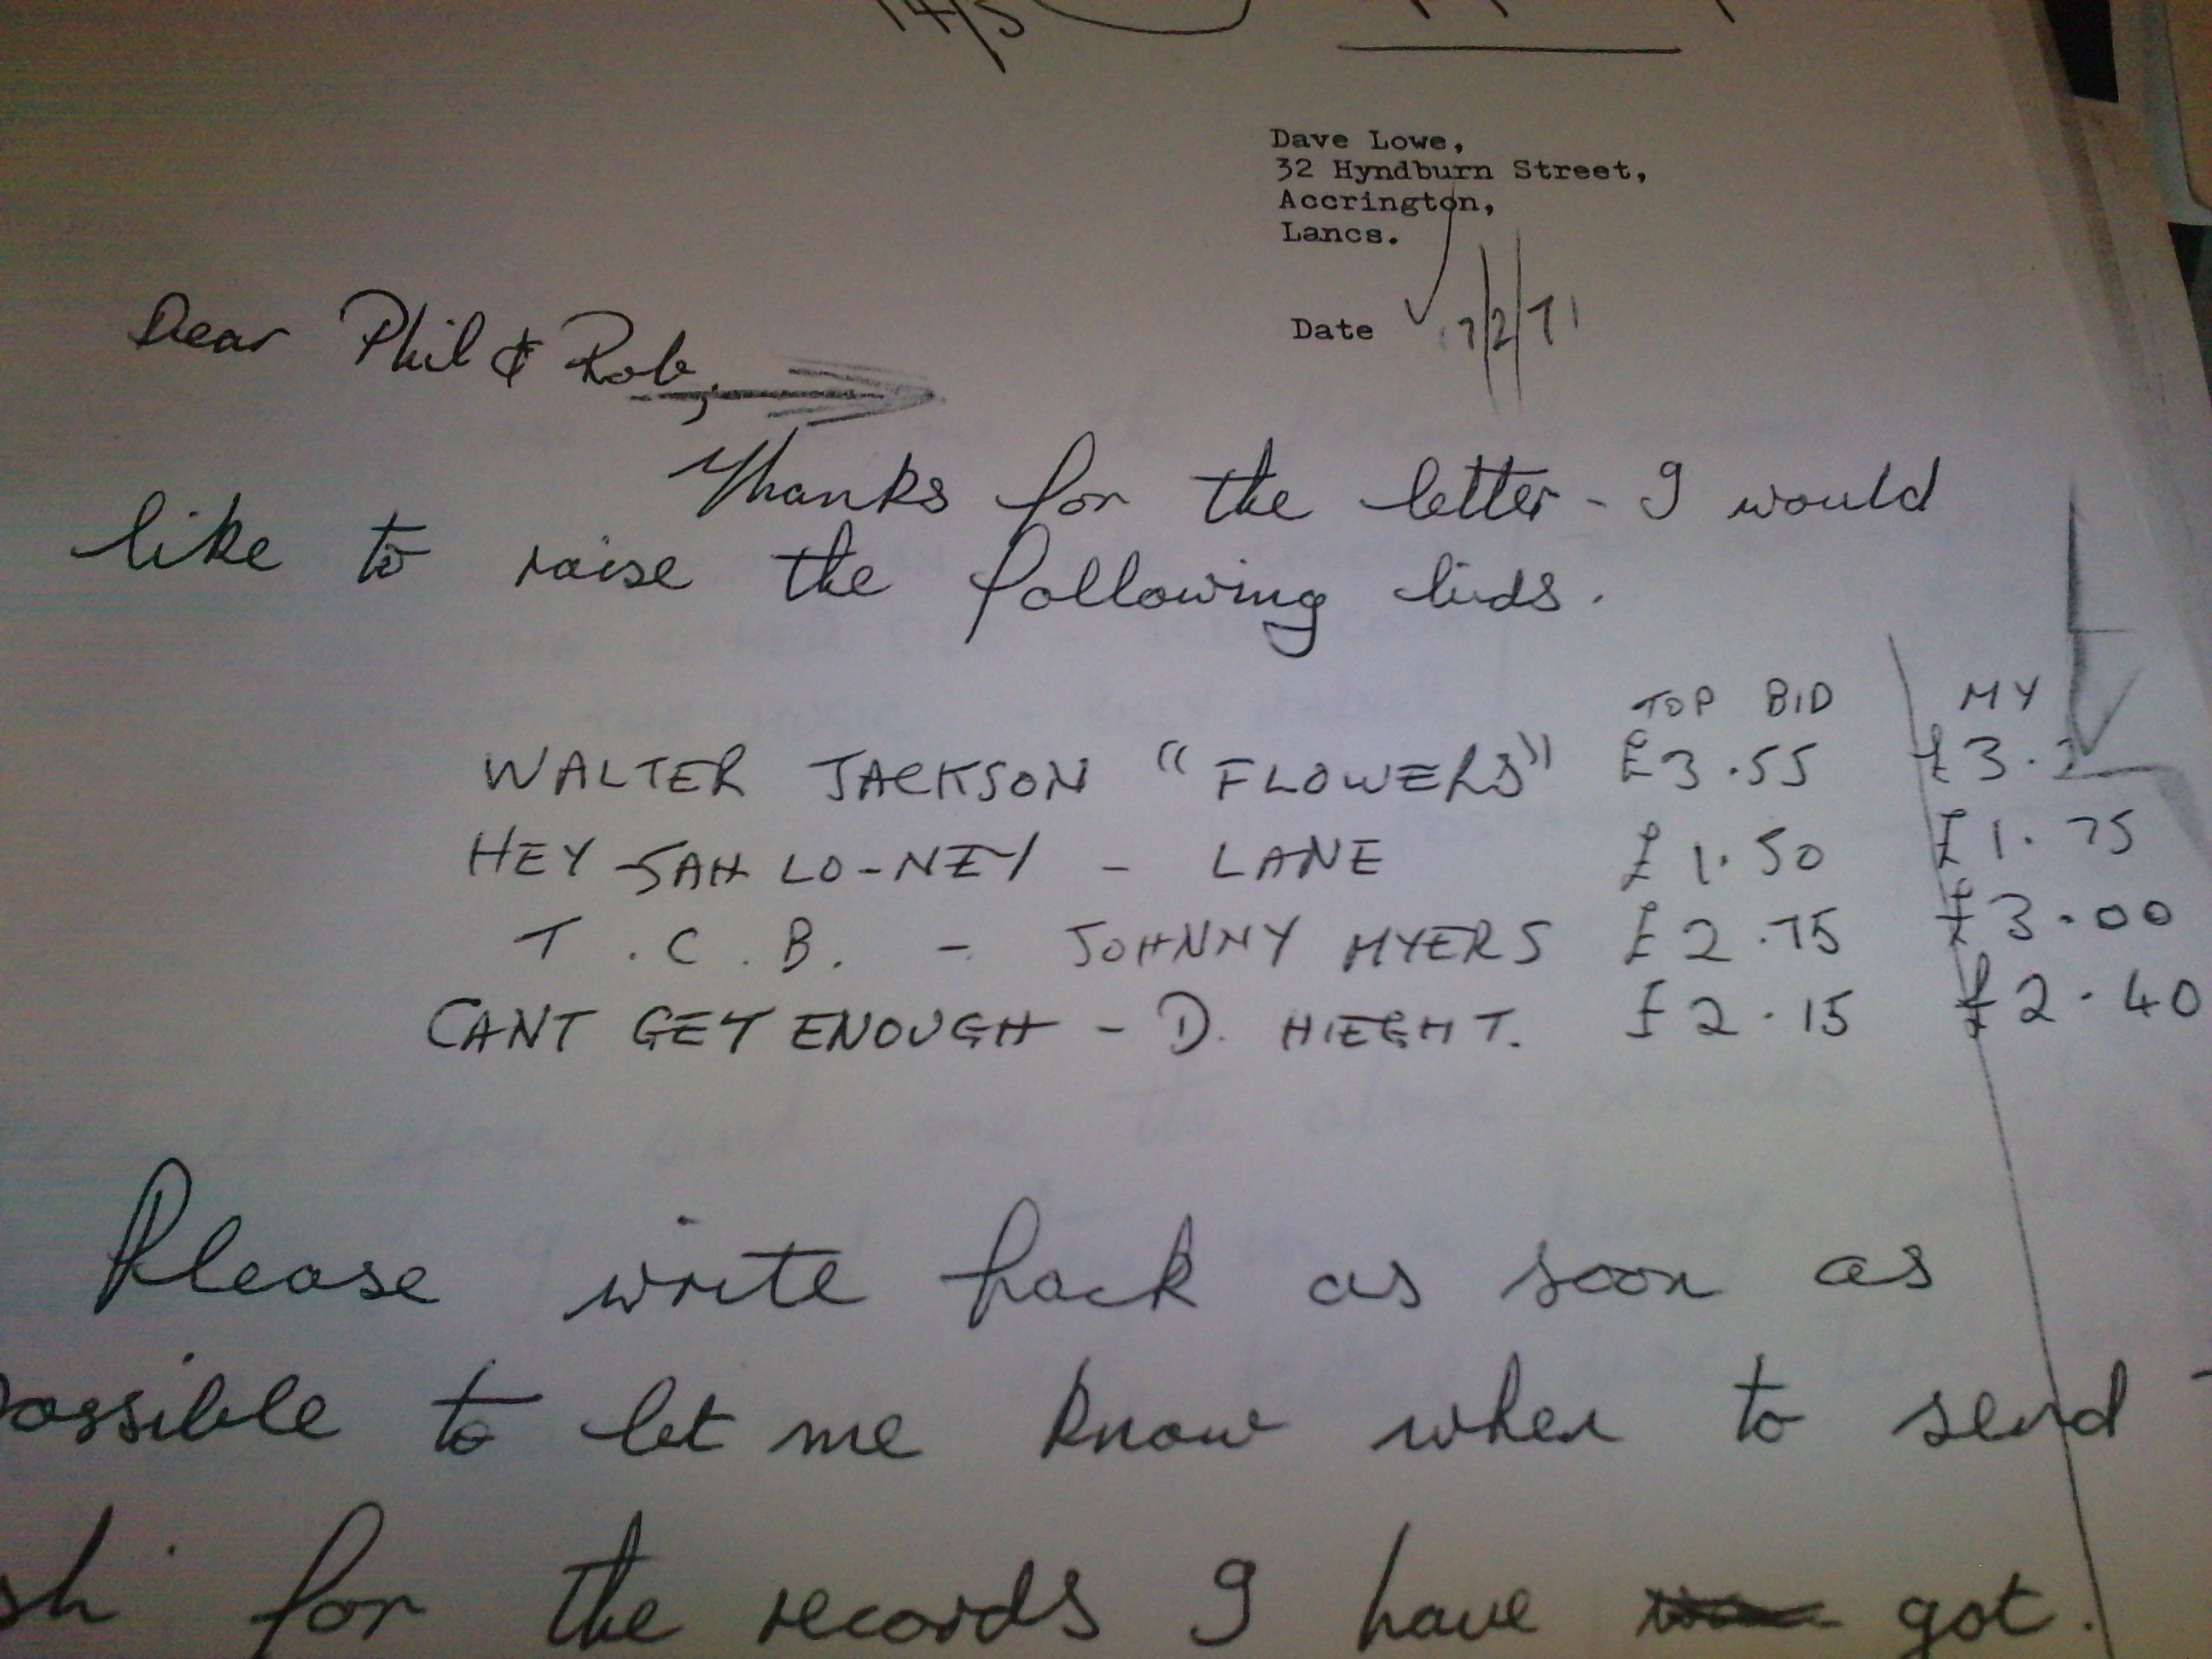 14/5
Dave Lowe,
32 Hyndburn Street,
Accrington,
Lancs.
Date 7/2/71
Dear Phil & Rob,
Thanks for the letter - I would
like to raise the following bids.
TOP BID MY
WALTER JACKSON "FLOWERS" £3.55 £3.
HEY SAH LO-NEY - LANE £1.50 £1.75
T.C.B. - JOHNNY MYERS £2.75 £3.00
CANT GET ENOUGH - D. HIEGHT. £2.15 £2.40
Please write back as soon as
possible to let me know when to send
sh for the records I have got.